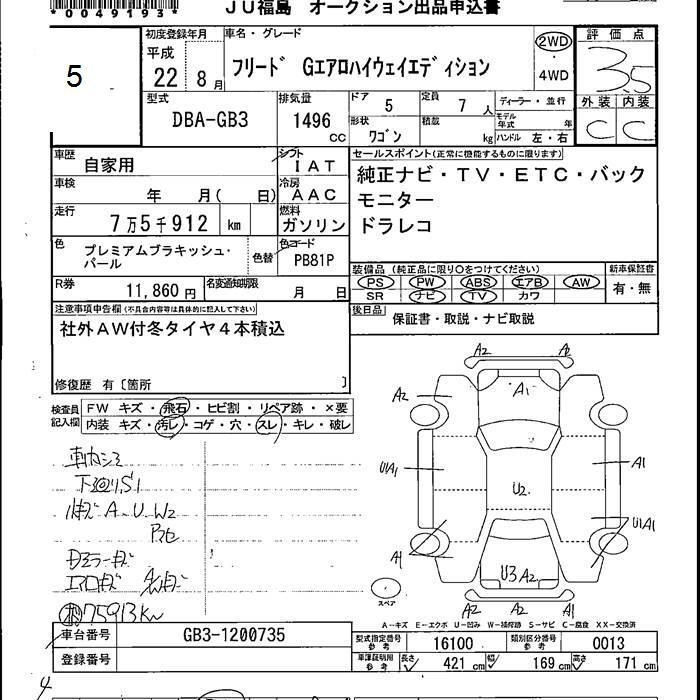 *0049193*
JU福島 オークション出品申込書
5
初度登録年月 車名・グレード
平成 22年 8月
フリード Gエアロハイウェイエディション
2WD
・
4WD
評価点
3.5
外装 内装
C C
型式 DBA-GB3
排気量 1496 cc
ドア 5
定員 7人
形状 ワゴン
積載 kg
ディーラー・並行
モデル年式 年
ハンドル 左・右
車歴 自家用
シフト IAT
車検 年 月( 日)
冷房 AAC
走行 7万5千912 km
燃料 ガソリン
色 プレミアムブラキッシュ・パール
色替
色コード PB81P
R券 11,860円
名変通知期限 月 日
セールスポイント(正常に機能するものに限ります)
純正ナビ・TV・ETC・バック
モニター
ドラレコ
装備品 (純正品に限り○をつけてください)
PS PW ABS エアB AW
SR ナビ TV カワ
新車保証書
有・無
後日品 保証書・取説・ナビ取説
注意事項申告欄(不具合内容等は具体的に記入して下さい)
社外AW付冬タイヤ4本積込
修復歴 有〔箇所 〕
検査員記入欄
FW キズ・飛石・ヒビ割・リペア跡・×要
内装 キズ・汚レ・コゲ・穴・スレ・キレ・破レ
下廻りS1
A U W2
Dミラーキズ
エアロキズ
75913km
A2 A2
A1
A2
U1A1
A1
U2
U1A1
A1
U3 A2
A2 A2 A1
スペア
A-キズ E-エクボ U-凹み W-補修跡 S-サビ C-腐食 XX-交換済
車台番号 GB3-1200735
登録番号
型式指定番号 参考 16100
類別区分番号 参考 0013
車庫証明用 参考 長さ 421 cm 幅 169 cm 高さ 171 cm